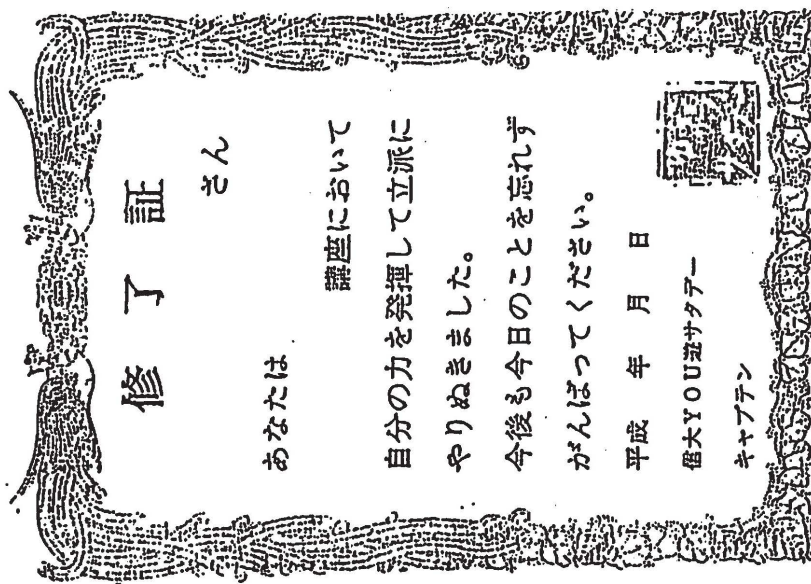 修了証
さん
あなたは
講座において
自分の力を発揮して立派に
やりぬきました。
今後も今日のことを忘れず
がんばってください。
平成　年　月　日
信大YOU遊サタデー
キャプテン